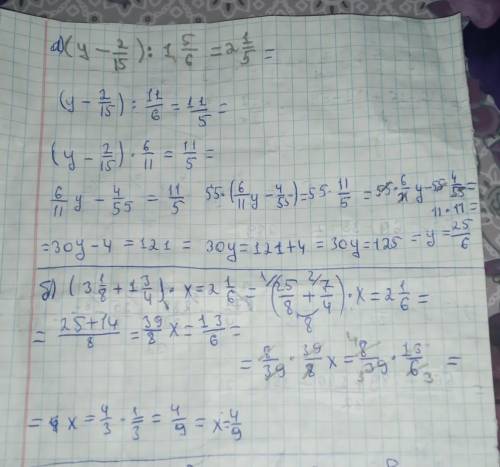 а) (y - 2/15) : 1 5/6 = 2 1/5 =
(y - 2/15) : 11/6 = 11/5 =
(y - 2/15) · 6/11 = 11/5 =
6/11 y - 4/55 = 11/5   55·(6/11 y - 4/55) = 55 · 11/5 = 55 · 6/11 y - 55 · 4/55 =
11 · 11 =
= 30y - 4 = 121 = 30y = 121 + 4 = 30y = 125 = y = 25/6
б) (3 1/8 + 1 3/4) · x = 2 1/6 = (25/8 + 7/4) · x = 2 1/6 =
= 25+14/8 = 39/8 x = 13/6 =
= 8/39 · 39/8 x = 8/39 · 13/6 =
= x = 4/3 · 1/3 = 4/9 = x = 4/9